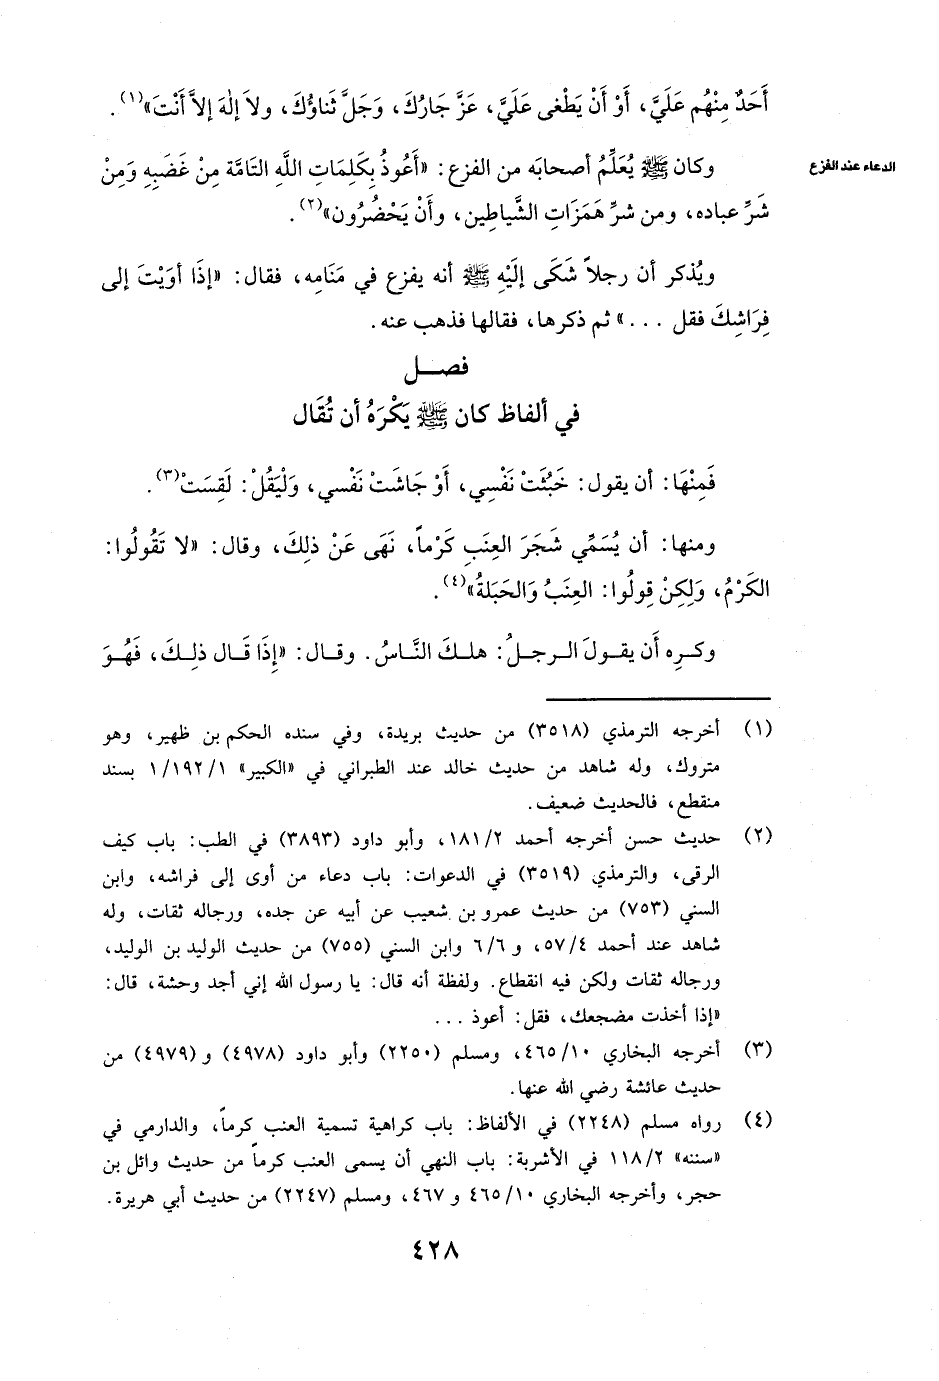 أَحَدٌ مِنْهُم عَلَيَّ، أَوْ أَنْ يَطْغى عَلَيَّ، عَزَّ جَارُكَ، وَجَلَّ ثَناؤُكَ، ولاَ إلٰهَ إلاَّ أَنْتَ»(١).
الدعاء عند الفزع
وكان ﷺ يُعَلِّمُ أصحابَه من الفزع: «أَعُوذُ بِكَلِمَاتِ اللَّهِ التَامَّة مِنْ غَضَبِهِ وَمِنْ
شَرِّ عباده، ومن شرِّ هَمَزَاتِ الشَّياطين، وأَنْ يَحْضُرُون»(٢).
ويُذكر أن رجلاً شَكَى إلَيْهِ ﷺ أنه يفزع في مَنَامِه، فقال: «إذَا أوَيْتَ إلى
فِرَاشِكَ فقل ...» ثم ذكرها، فقالها فذهب عنه.
فصــل
في ألفاظ كان ﷺ يَكْرَهُ أن تُقَال
فَمِنْهَا: أن يقول: خَبُثَتْ نَفْسِي، أَوْ جَاشَتْ نَفْسي، وَلْيَقُلْ: لَقِسَتْ(٣).
ومنها: أن يُسَمِّي شَجَرَ العِنَبِ كَرْماً، نَهَى عَنْ ذلِكَ، وقال: «لا تَقُولُوا:
الكَرْمُ، وَلكِنْ قِولُوا: العِنَبُ وَالحَبَلةُ»(٤).
وكـره أَن يقـولَ الـرجـلُ: هلـكَ النَّاسُ. وقـال: «إذَا قَـال ذلِـكَ، فَهُـوَ
(١) أخرجه الترمذي (٣٥١٨) من حديث بريدة، وفي سنده الحكم بن ظهير، وهو
متروك، وله شاهد من حديث خالد عند الطبراني في «الكبير» ١/١٩٢/١ بسند
منقطع، فالحديث ضعيف.
(٢) حديث حسن أخرجه أحمد ١٨١/٢، وأبو داود (٣٨٩٣) في الطب: باب كيف
الرقى، والترمذي (٣٥١٩) في الدعوات: باب دعاء من أوى إلى فراشه، وابن
السني (٧٥٣) من حديث عمرو بن شعيب عن أبيه عن جده، ورجاله ثقات، وله
شاهد عند أحمد ٥٧/٤، و ٦/٦ وابن السني (٧٥٥) من حديث الوليد بن الوليد،
ورجاله ثقات ولكن فيه انقطاع. ولفظة أنه قال: يا رسول الله إني أجد وحشة، قال:
«إذا أخذت مضجعك، فقل: أعوذ ...
(٣) أخرجه البخاري ٤٦٥/١٠، ومسلم (٢٢٥٠) وأبو داود (٤٩٧٨) و(٤٩٧٩) من
حديث عائشة رضي الله عنها.
(٤) رواه مسلم (٢٢٤٨) في الألفاظ: باب كراهية تسمية العنب كرماً، والدارمي في
«سننه» ١١٨/٢ في الأشربة: باب النهي أن يسمى العنب كرماً من حديث وائل بن
حجر، وأخرجه البخاري ٤٦٥/١٠ و ٤٦٧، ومسلم (٢٢٤٧) من حديث أبي هريرة.
٤٢٨